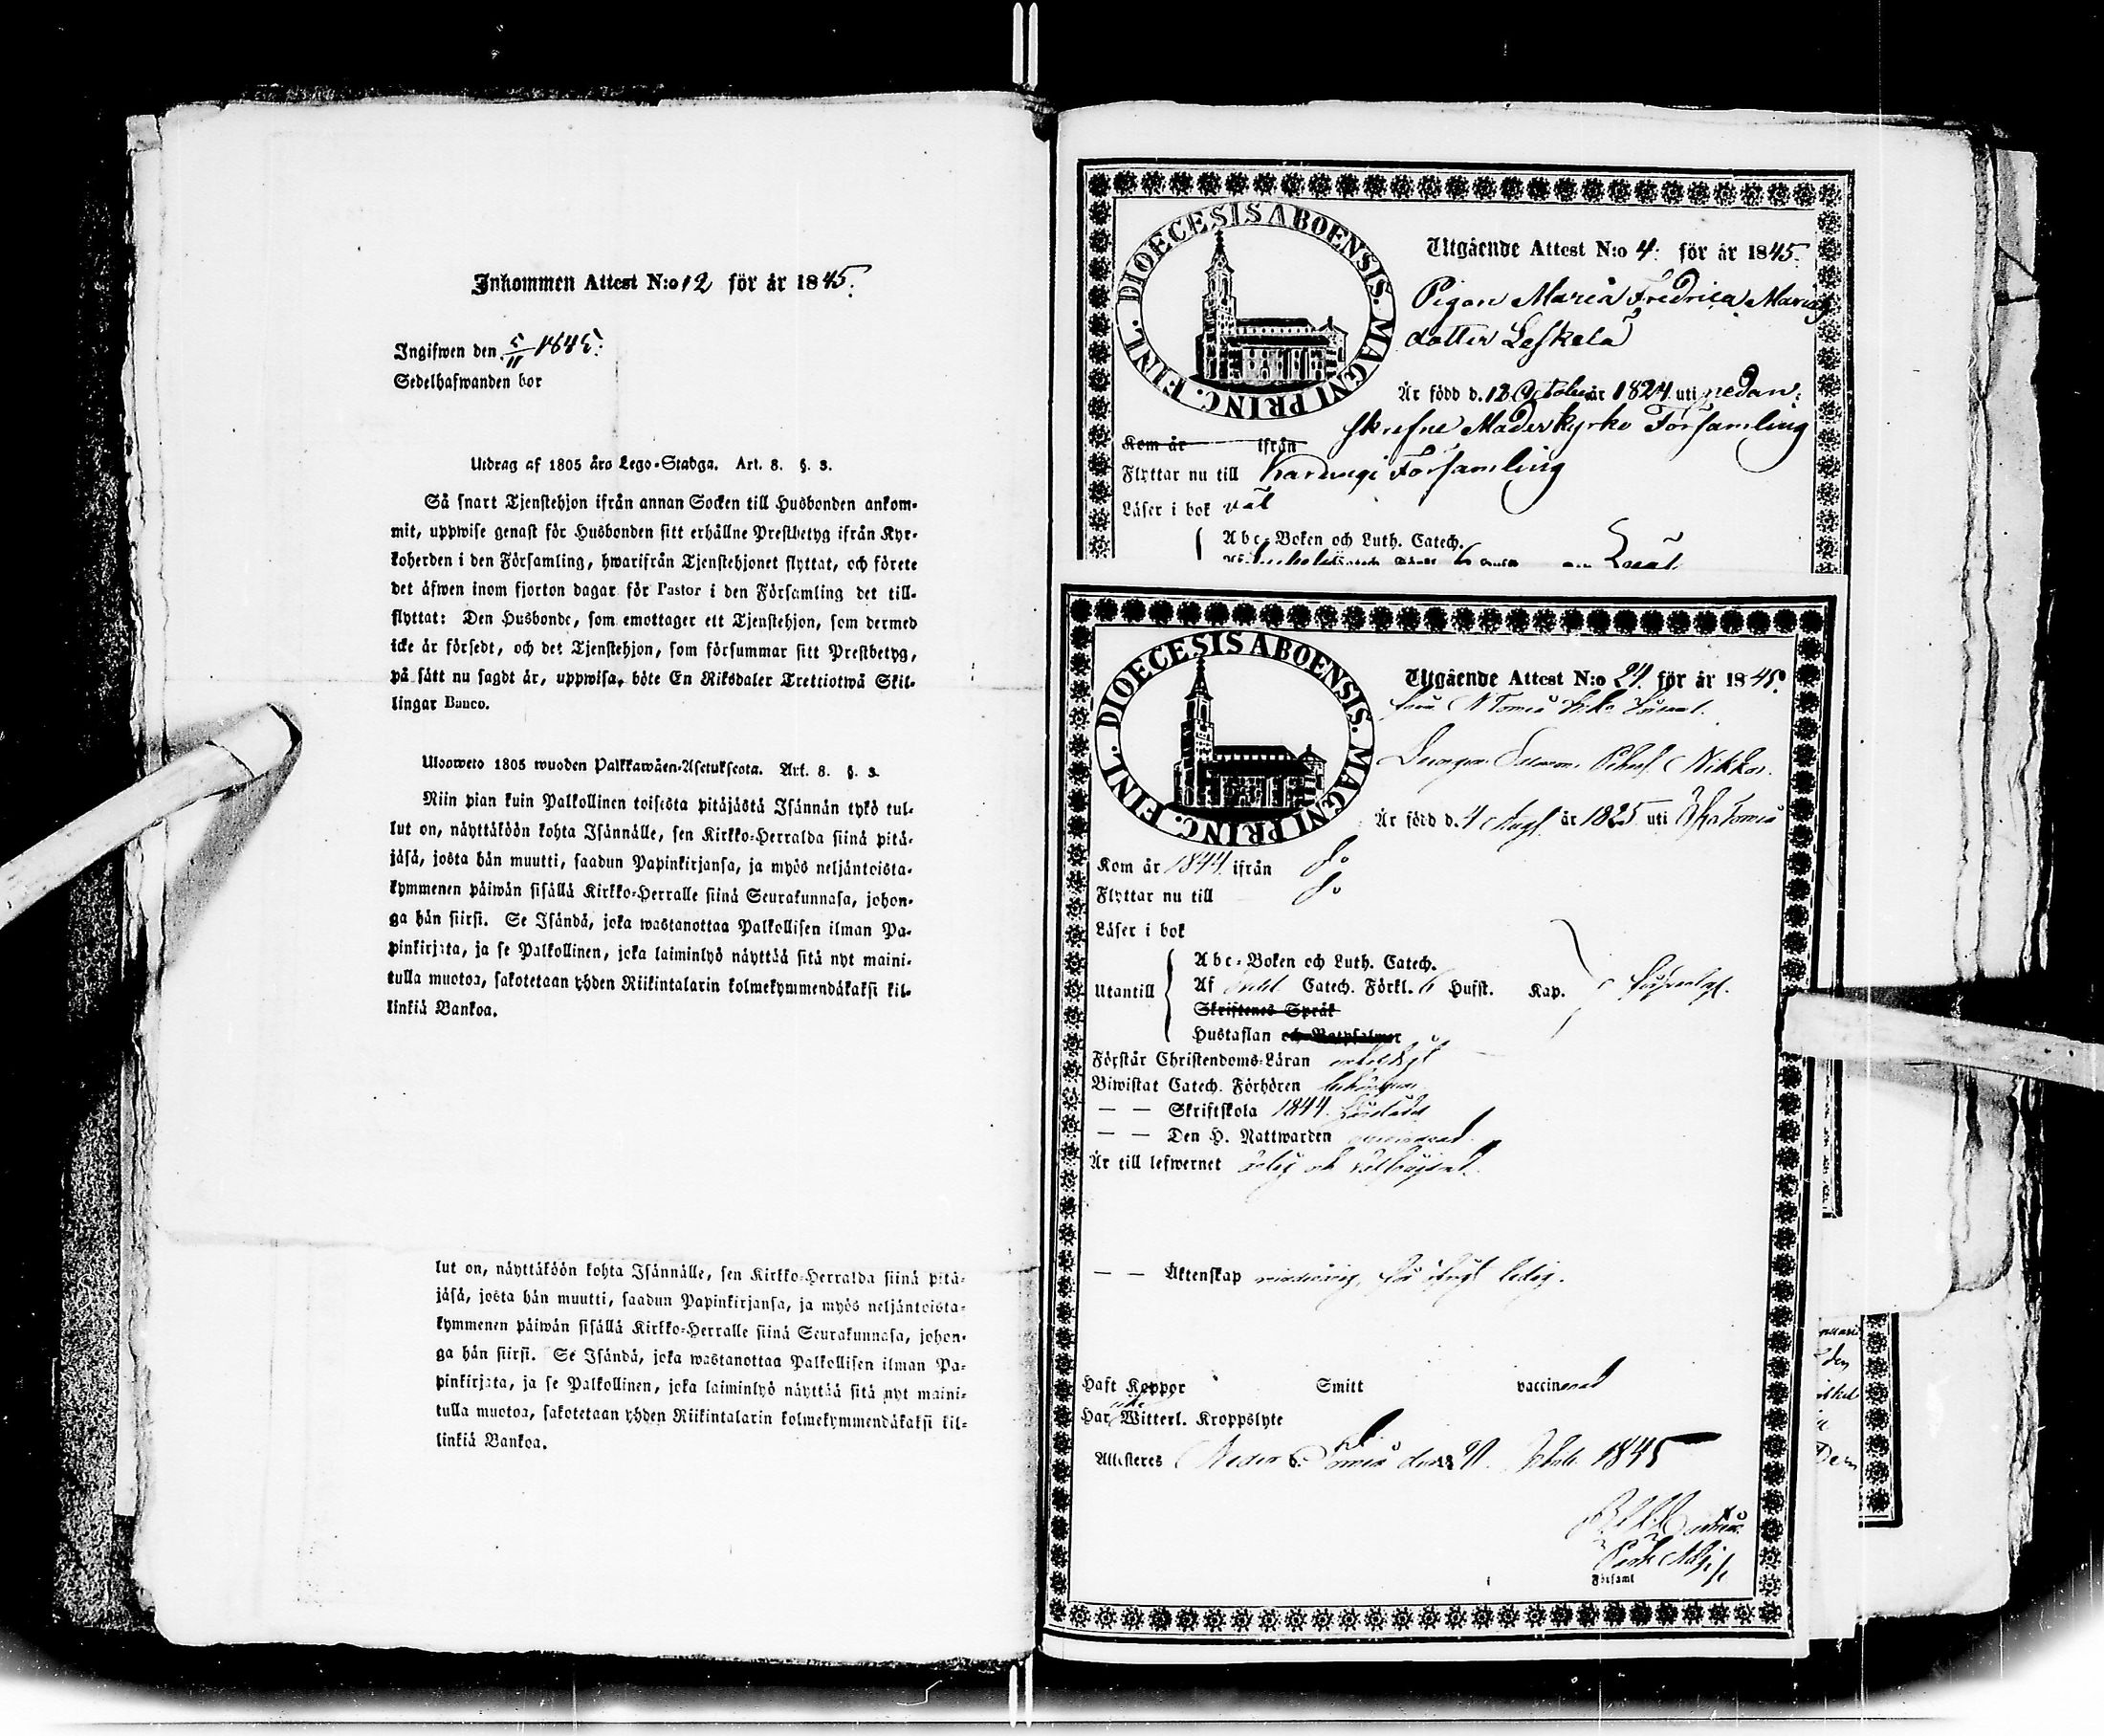 Inkommen Attest N:o 12 för år 1845.
Ingifwen den 5/11 1845.
Sedelhafwanden bor
Utdrag af 1805 års Lego-Stadga. Art. 8. §. 3.
Så snart Tjenstehjon ifrån annan Socken till Husbonden ankom-
mit, uppwise genast för Husbonden sitt erhållne Prestbetyg ifrån Kyr-
koherden i den Församling, hwarifrån Tjenstehjonet flyttat, och förete
det äfwen inom fjorton dagar för Pastor i den Församling det till-
flyttat: Den Husbonde, som emottager ett Tjenstehjon, som dermed
icke är försedt, och det Tjenstehjon, som försummar sitt Prestbetyg,
på sätt nu sagdt är, uppwisa, böte En Riksdaler Trettiotwå Skil-
lingar Banco.
Uloosweto 1805 wuoden Palkkawäen-Asetuksesta. Art. 8. §. 3.
Niin pian kuin Palkollinen toisesta pitäjästä Isännän tykö tul-
lut on, näyttäköön kohta Isännälle, sen Kirkko-Herralda siinä pitä-
jäsä, josta hän muutti, saadun Papinkirjansa, ja myös neljäntoista-
kymmenen päiwän sisällä Kirkko-Herralle siinä Seurakunnasa, johon-
ga hän siirsi. Se Isändä, joka wastanottaa Palkollisen ilman Pa-
pinkirjata, ja se Palkollinen, joka laiminlyö näyttää sitä nyt maini-
tulla muotoa, sakotetaan yhden Riikintalarin kolmekymmendäkaksi kil-
linkiä Bankoa.
lut on, näyttäköön kohta Isännälle, sen Kirkko-Herralda siinä pitä-
jäsä, josta hän muutti, saadun Papinkirjansa, ja myös neljäntoista-
kymmenen päiwän sisällä Kirkko-Herralle siinä Seurakunnasa, johon-
ga hän siirsi. Se Isändä, joka wastanottaa Palkollisen ilman Pa-
pinkirjata, ja se Palkollinen, joka laiminlyö näyttää sitä nyt maini-
tulla muotoa, sakotetaan yhden Riikintalarin kolmekymmendäkaksi kil-
linkiä Bankoa.
DIOECESIS ABOENSIS. MAGNI PRINC. FINL.
Utgående Attest N:o 4. för år 1845.
Pigan Maria Fredrica Mariæ
dotter Leskelä
Är född d. 13 October år 1824 uti nedan-
skrefne Moderkyrko Församling
Kom år ifrån
Flyttar nu till Karungi Församling
Läser i bok väl
Abc-Boken och Luth. Catech.
DIOECESIS ABOENSIS. MAGNI PRINC. FINL.
Utgående Attest N:o 24. för år 1845.
Är född d. 4 Aug. år 1825 uti
Kom år 1844 ifrån do
Flyttar nu till do
Läser i bok
Abc-Boken och Luth. Catech.
Utantill Af Catech. Förkl. 6 Hufst. Kap.
Skriftenes Språk
Hustaflan och Botpsalmer
Förstår Christendoms-Läran
Biwistat Catech. Förhören
— — Skriftskola 1844
— — Den H. Nattwarden
Är till lefwernet ärlig och
— — Äktenskap ledig.
Haft Koppor Smitt vaccinerad
Har Witterl. Kroppslyte
Attesteras Neder Torneå den 1845
Församl